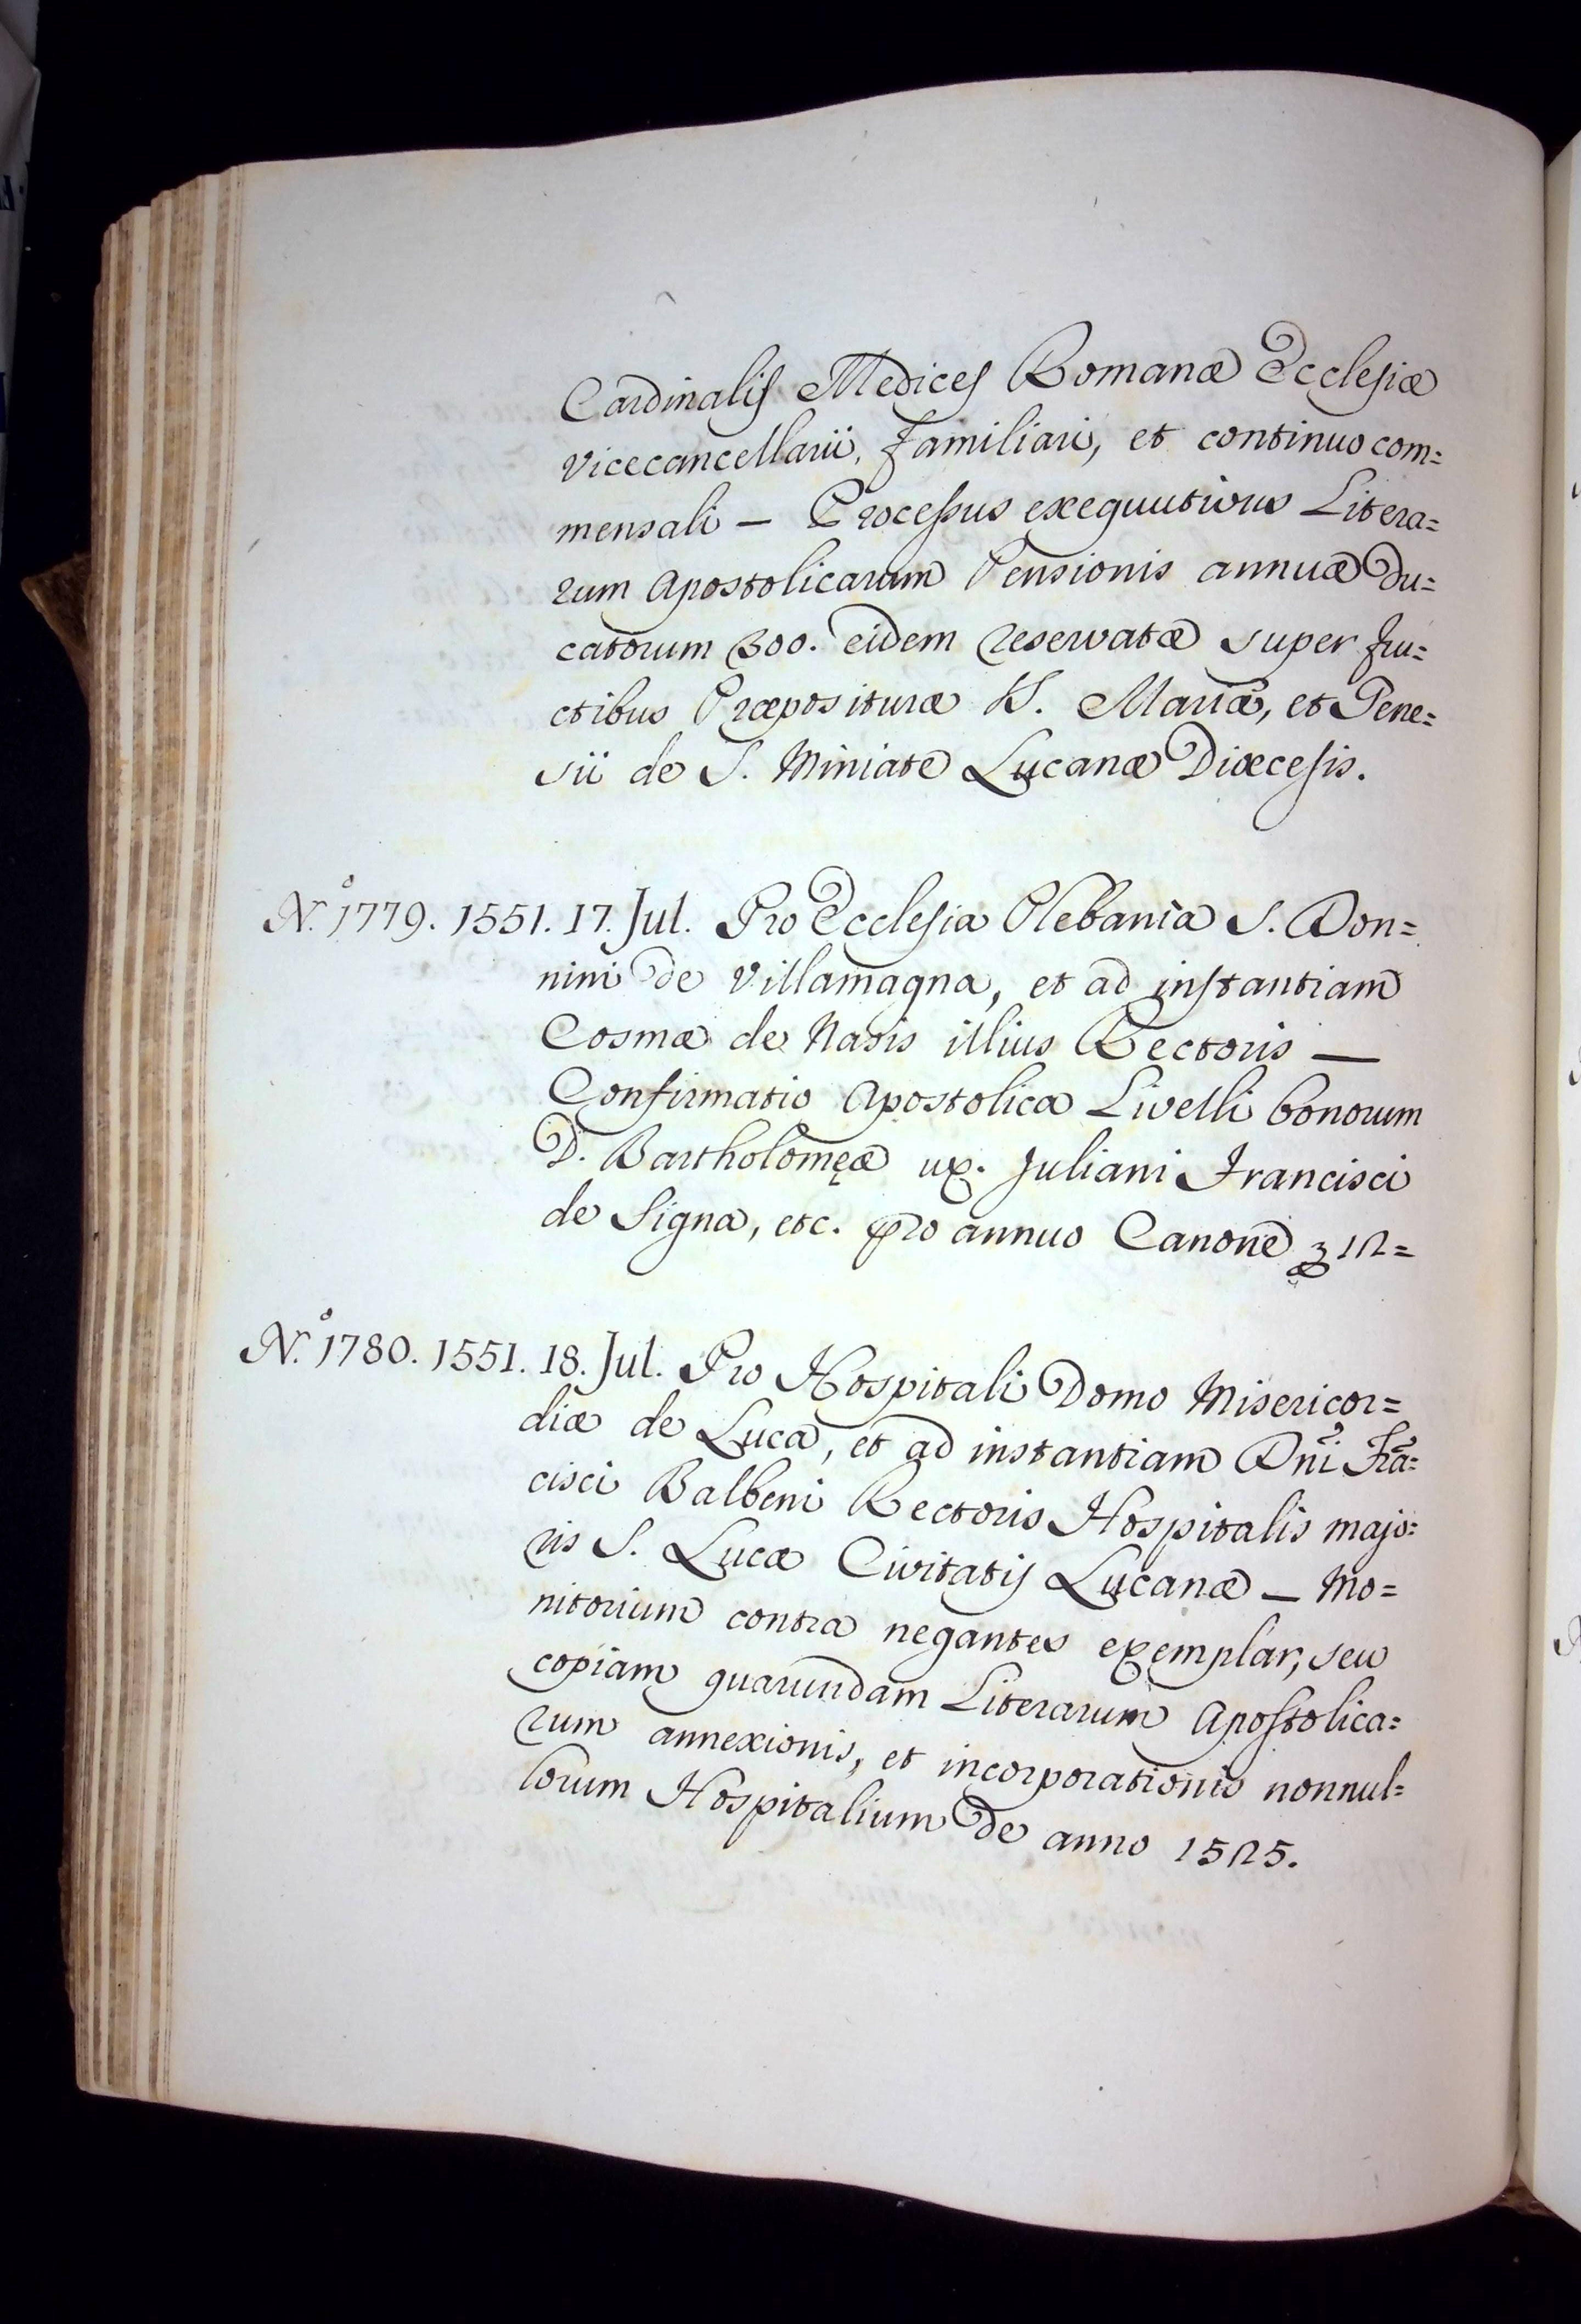 Cardinalis Medices Romanæ Ecclesiæ
Vicecancellarii, Familiari, et continuo com=
mensali — Processus exequutivus Litera=
rum Apostolicarum Pensionis annuæ Du=
catorum 300. eidem reservatæ super fru=
ctibus Præposituræ S. Mariæ, et Gene=
sii de S. Miniate Lucanæ Diœcesis.
N.° 1779. 1551. 17. Jul. Pro Ecclesia Plebania S. Don=
nini de Villamagna, et ad instantiam
Cosmæ de Nasis illius Rectoris —
Confirmatio Apostolica Livelli bonorum
D. Bartholomęæ ux. Juliani Francisci
de Signa, etc. pro annuo Canone 12=
N.° 1780. 1551. 18. Jul. Pro Hospitali Domo Misericor=
diæ de Luca, et ad instantiam Dñi Frã=
cisci Balbeni Rectoris Hospitalis majo=
ris S. Lucæ Civitatis Lucanæ — Mo=
nitorium contra negantes exemplar, seu
copiam quarundam Literarum Apostolica=
rum annexionis, et incorporationis nonnul=
lorum Hospitalium de anno 1525.